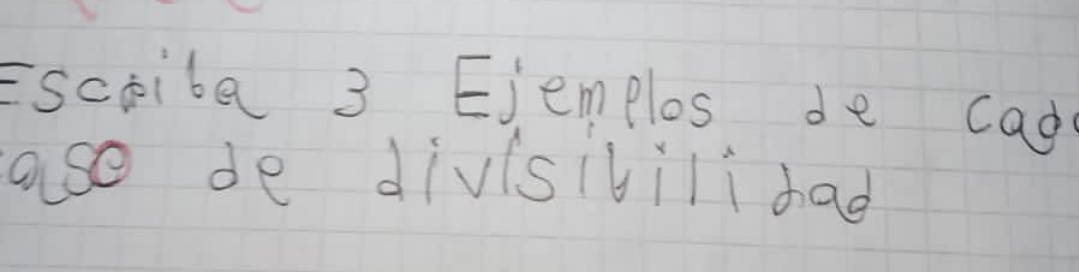 Escriba 3 Ejemplos de cada
caso de divisibilidad